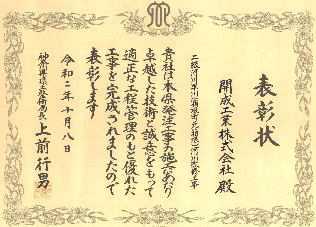 表彰状
開成工業株式会社 殿
二級河川早川(箱根町元箱根)河川改修工事
貴社は本県発注工事の施工にあたり
卓越した技術と誠意をもって
適正な工程管理のもと優れた
工事を完成されましたので
表彰します
令和二年十月八日
神奈川県県土整備局長 上前行男